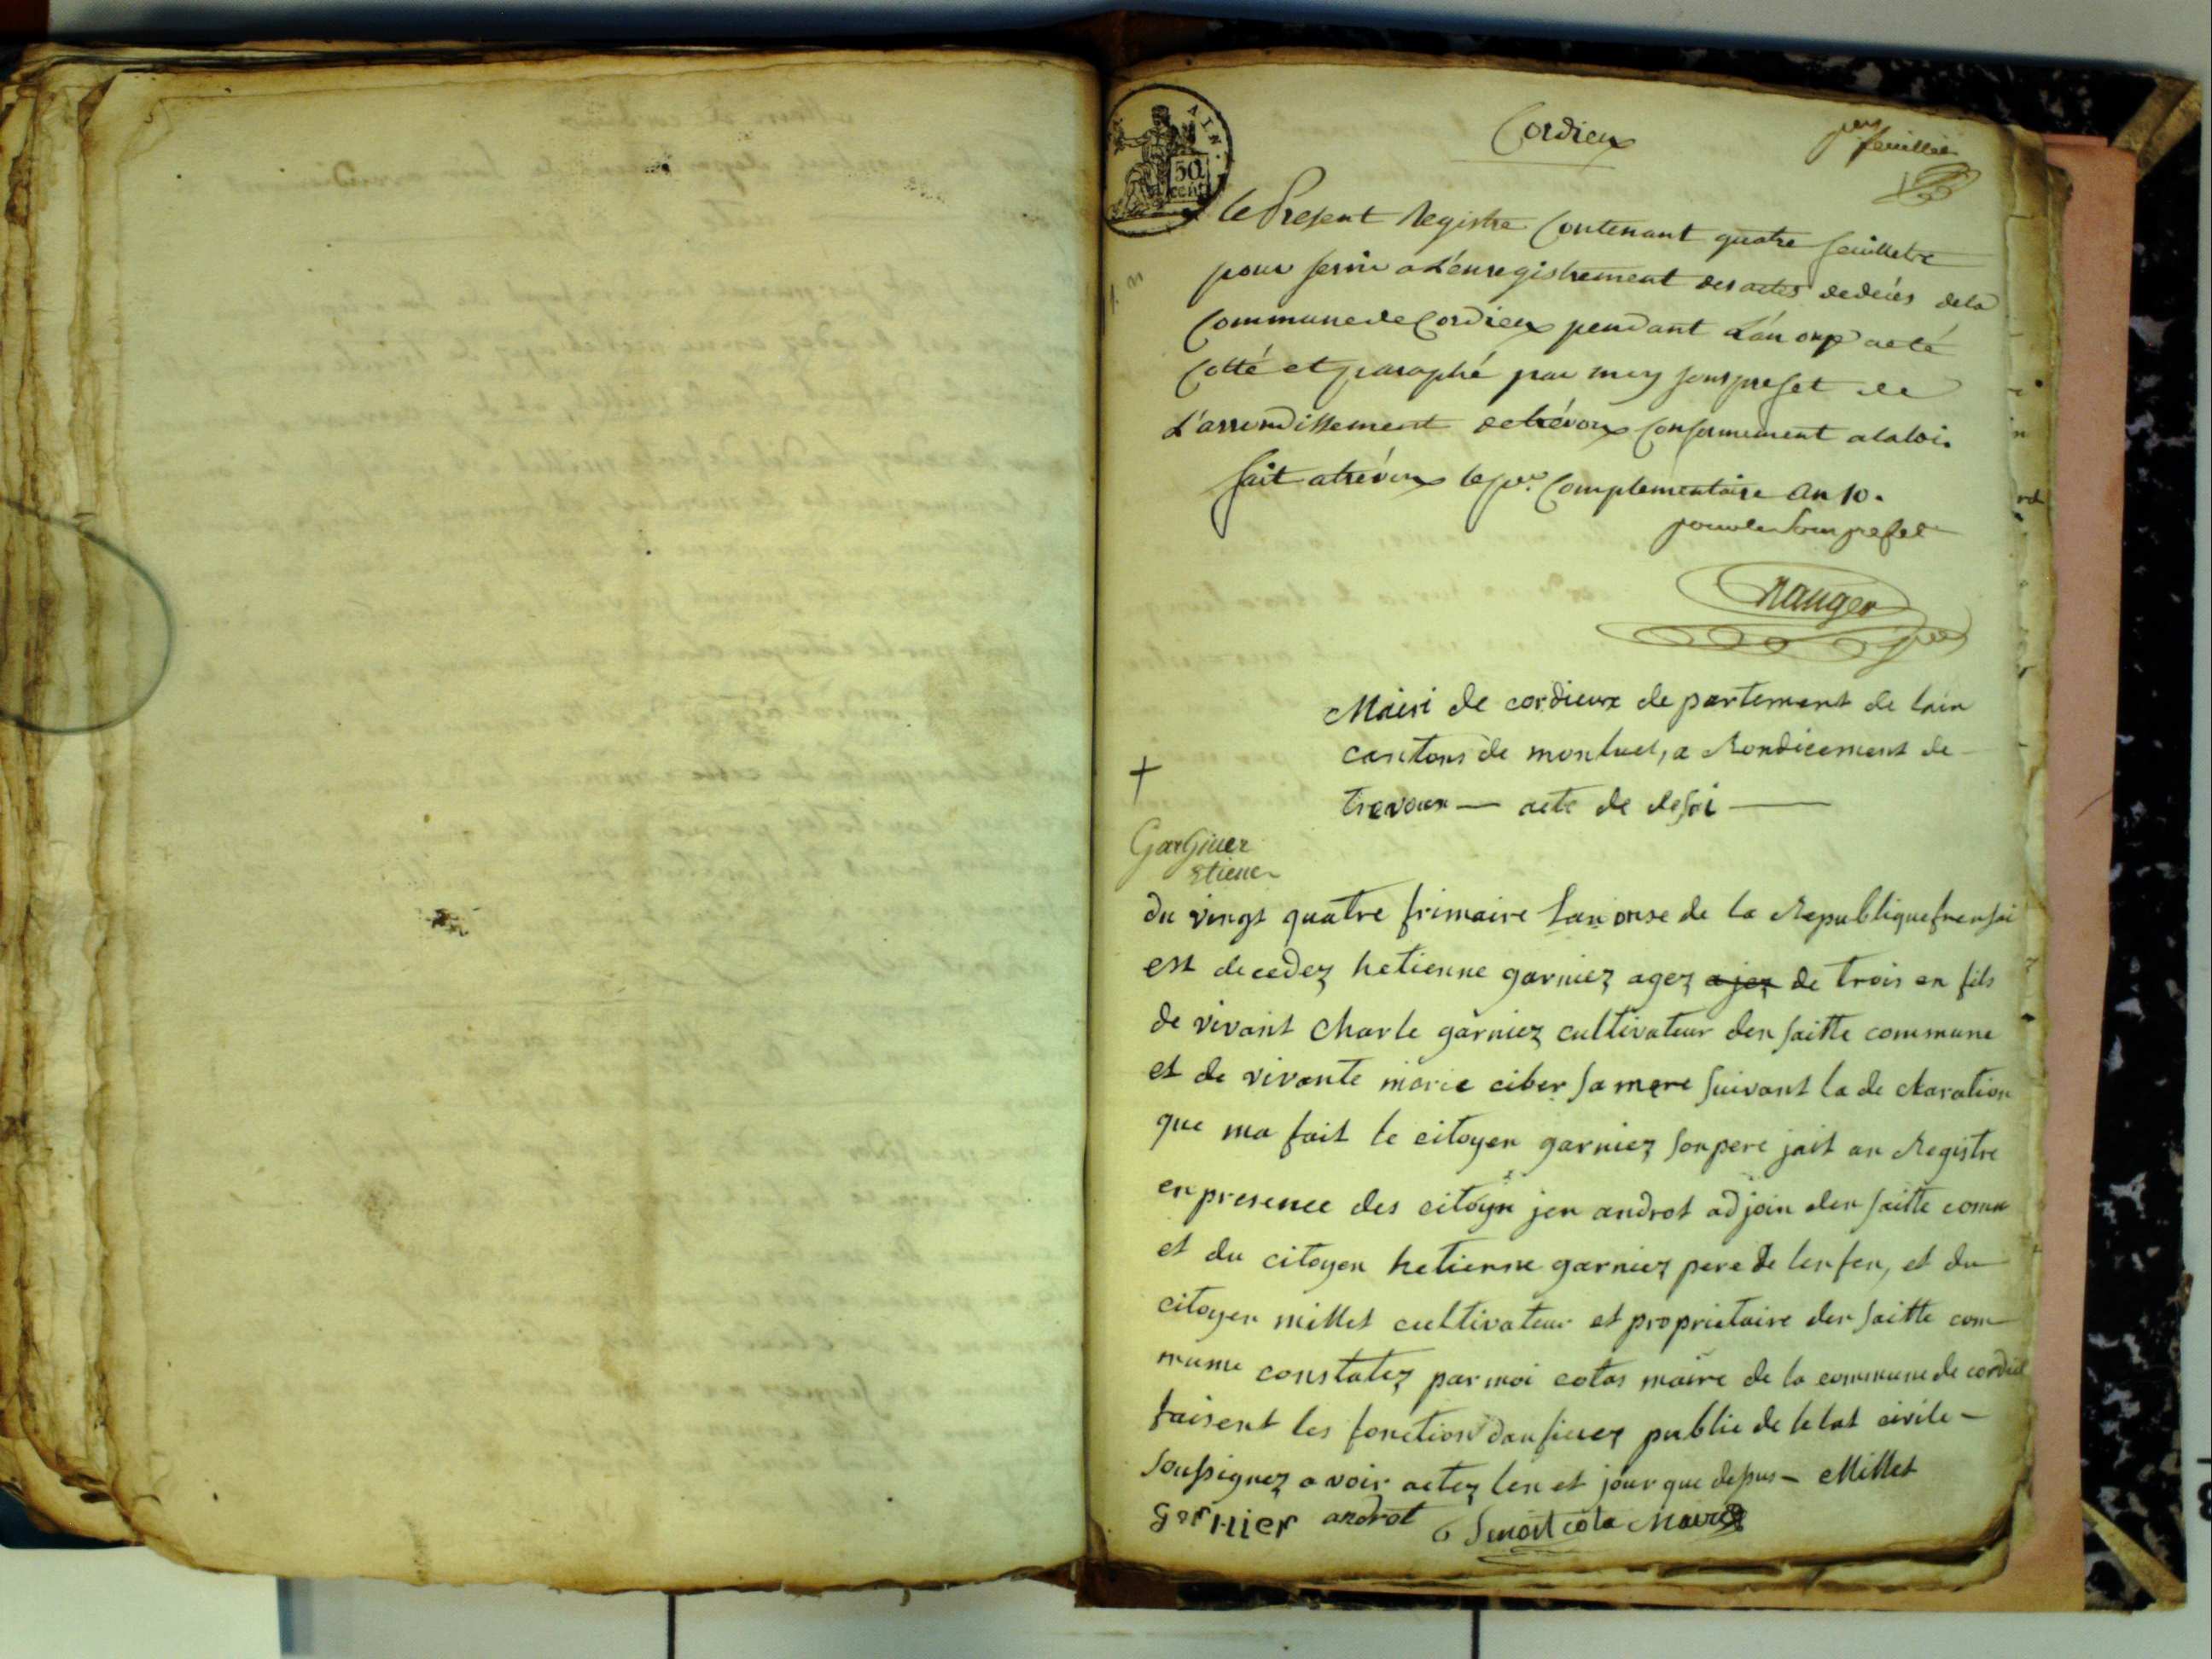 Cordieux
1er feuillet
AIN.
50
cent
Le Present Registre Contenant quatre feuillets
pour servir a L'enregistrement des actes de décés dela
Commune de Cordieux pendant L'an onze a eté
Cotté et paraphé par moy sous prefet de
L'arrondissement de trévoux conformement a la loi.
fait a trévoux le per. Complementaire An 10.
pour le sous prefet
Mairi de cordieux de partement de lain
cantons de montluel, a Rondicement de
trevoux — acte de desei —
+
Garginer
Etiene
du vingt quatre frimaire lan onse de la Republique frensai
est decedez hetienne garniez agez ajez de trois en fils
de vivant Charle garniez cultivateur den saitte commune
et de vivante marie ciber sa mere suivant la de claration
que ma fait le citoyen garniez son pere jait an Registre
en presence des citoyn jen androt ad join den saitte comn
et du citoyen hetienne garniez pere de lenfen, et du
citoyen millet cultivateur et proprietaire den saitte com
mune constatez par moi cotas maire de la commune de cordieu
faisent les fonction daufiuez public de letat civile —
soussignez avoir actez len et jour que desus — Millet
garnier androt Benoit cota Maire